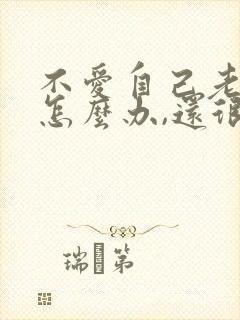 不愛自己老
怎麼办,還很
瑞 第